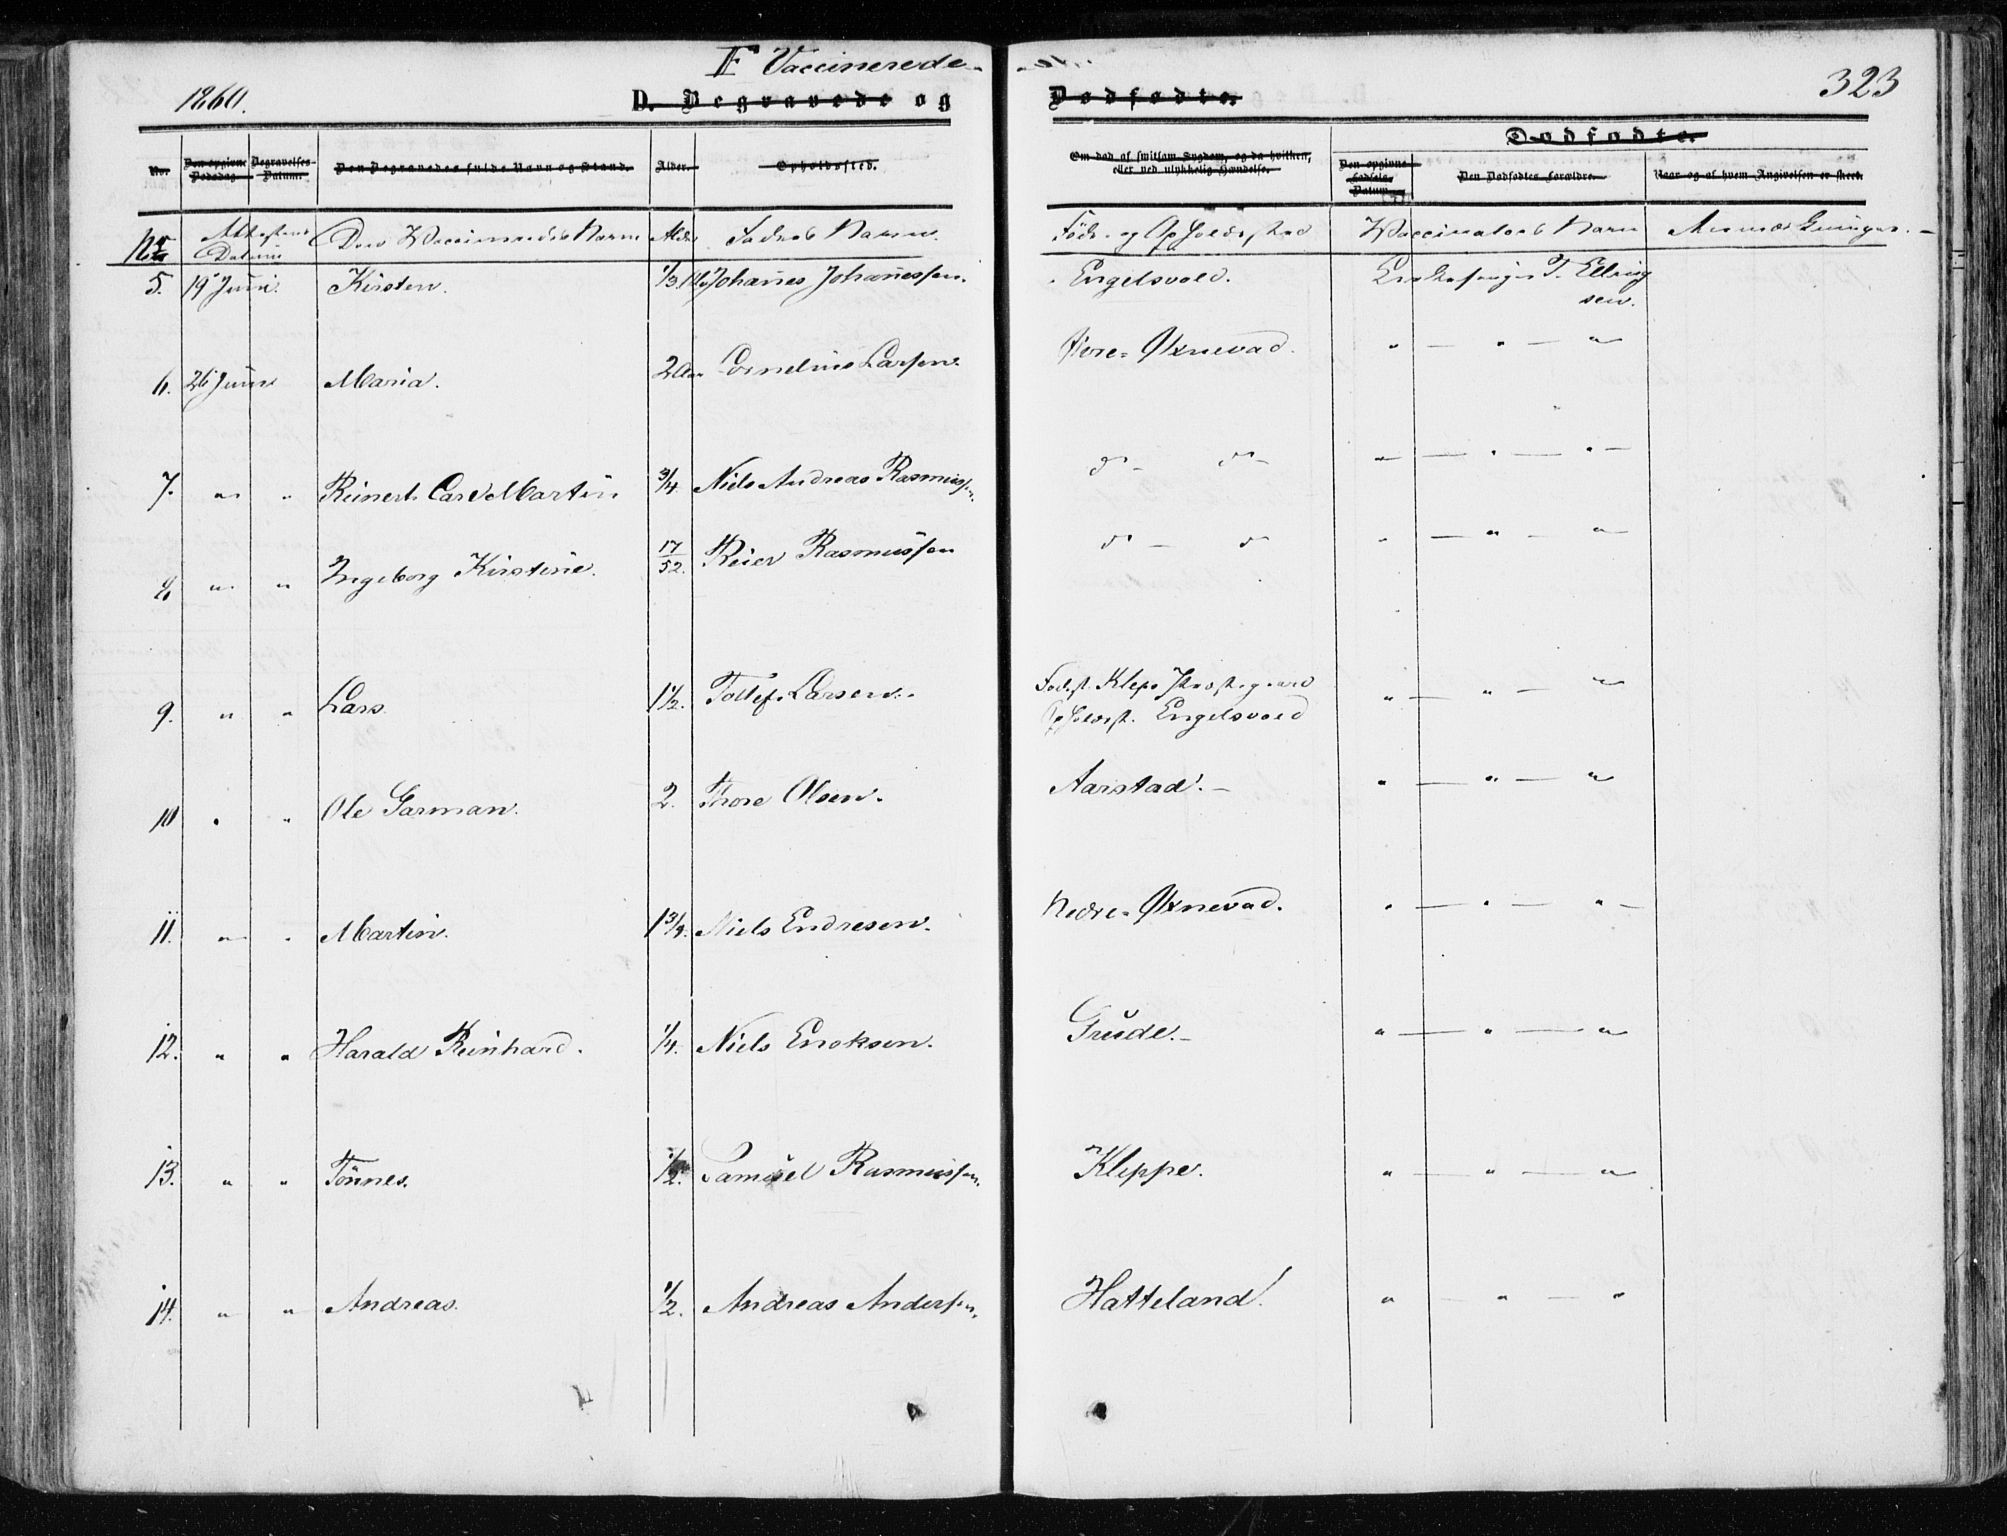 F Vaccinerede
1860.
D. Begravede og
Dødfødte.
323
Dødfødte.
No.
Den opgivne Dødsdag.
Begravelses-Datum.
Den Begravedes fulde Navn og Stand.
Alder.
Opholdssted.
Om død af smitsom Sygdom, og da hvilken, eller ved ulykkelig Hændelse.
Den opgivne Fødsels-Datum.
Den Dødfødtes Forældre.
Naar og af hvem Angivelsen er skeet.
No Attestens Datum Den Vaccineredes Navn Alder Faders Navn. Føde- og Opholdssted Vaccinators Navn Anmærkninger.
5. 19 Juni. Kirsten. Johanes Johanessen. Engelsvold. T. Ellingsen.
6. 26 Juni Maria. 2 Aar Cornelius Larsen. Øvre-Øxnevad. " — " — "
7. " " Reinert Carl Martin 3/4 Niels Andreas Rasmussen. do — do — " — " — " —
8 " " Ingeborg Kirstine. 17/52. Reier Rasmussen do — do " — " — "
9. " " Lars. 1 1/2. Tollef Larsen. Fødest. Klep Præstegaard
Opholdsst. Engelsvold " — " — "
10 " " Ole Garman. 2. Thore Olsen. Aarstad. — " — " — "
11. " " Martin. 1 3/4. Niels Endresen. Nedre-Øxnevad. " — " — " —
12. " " Harald Reinhard. 1/4. Niels Enoksen. Grude. — " — " — "
13. " " Tønnes. 1/2. Samuel Rasmussen. Kleppe. " — " — "
14. " " Andreas. 1/2. Andreas Andersen. Hatteland. " — " — "